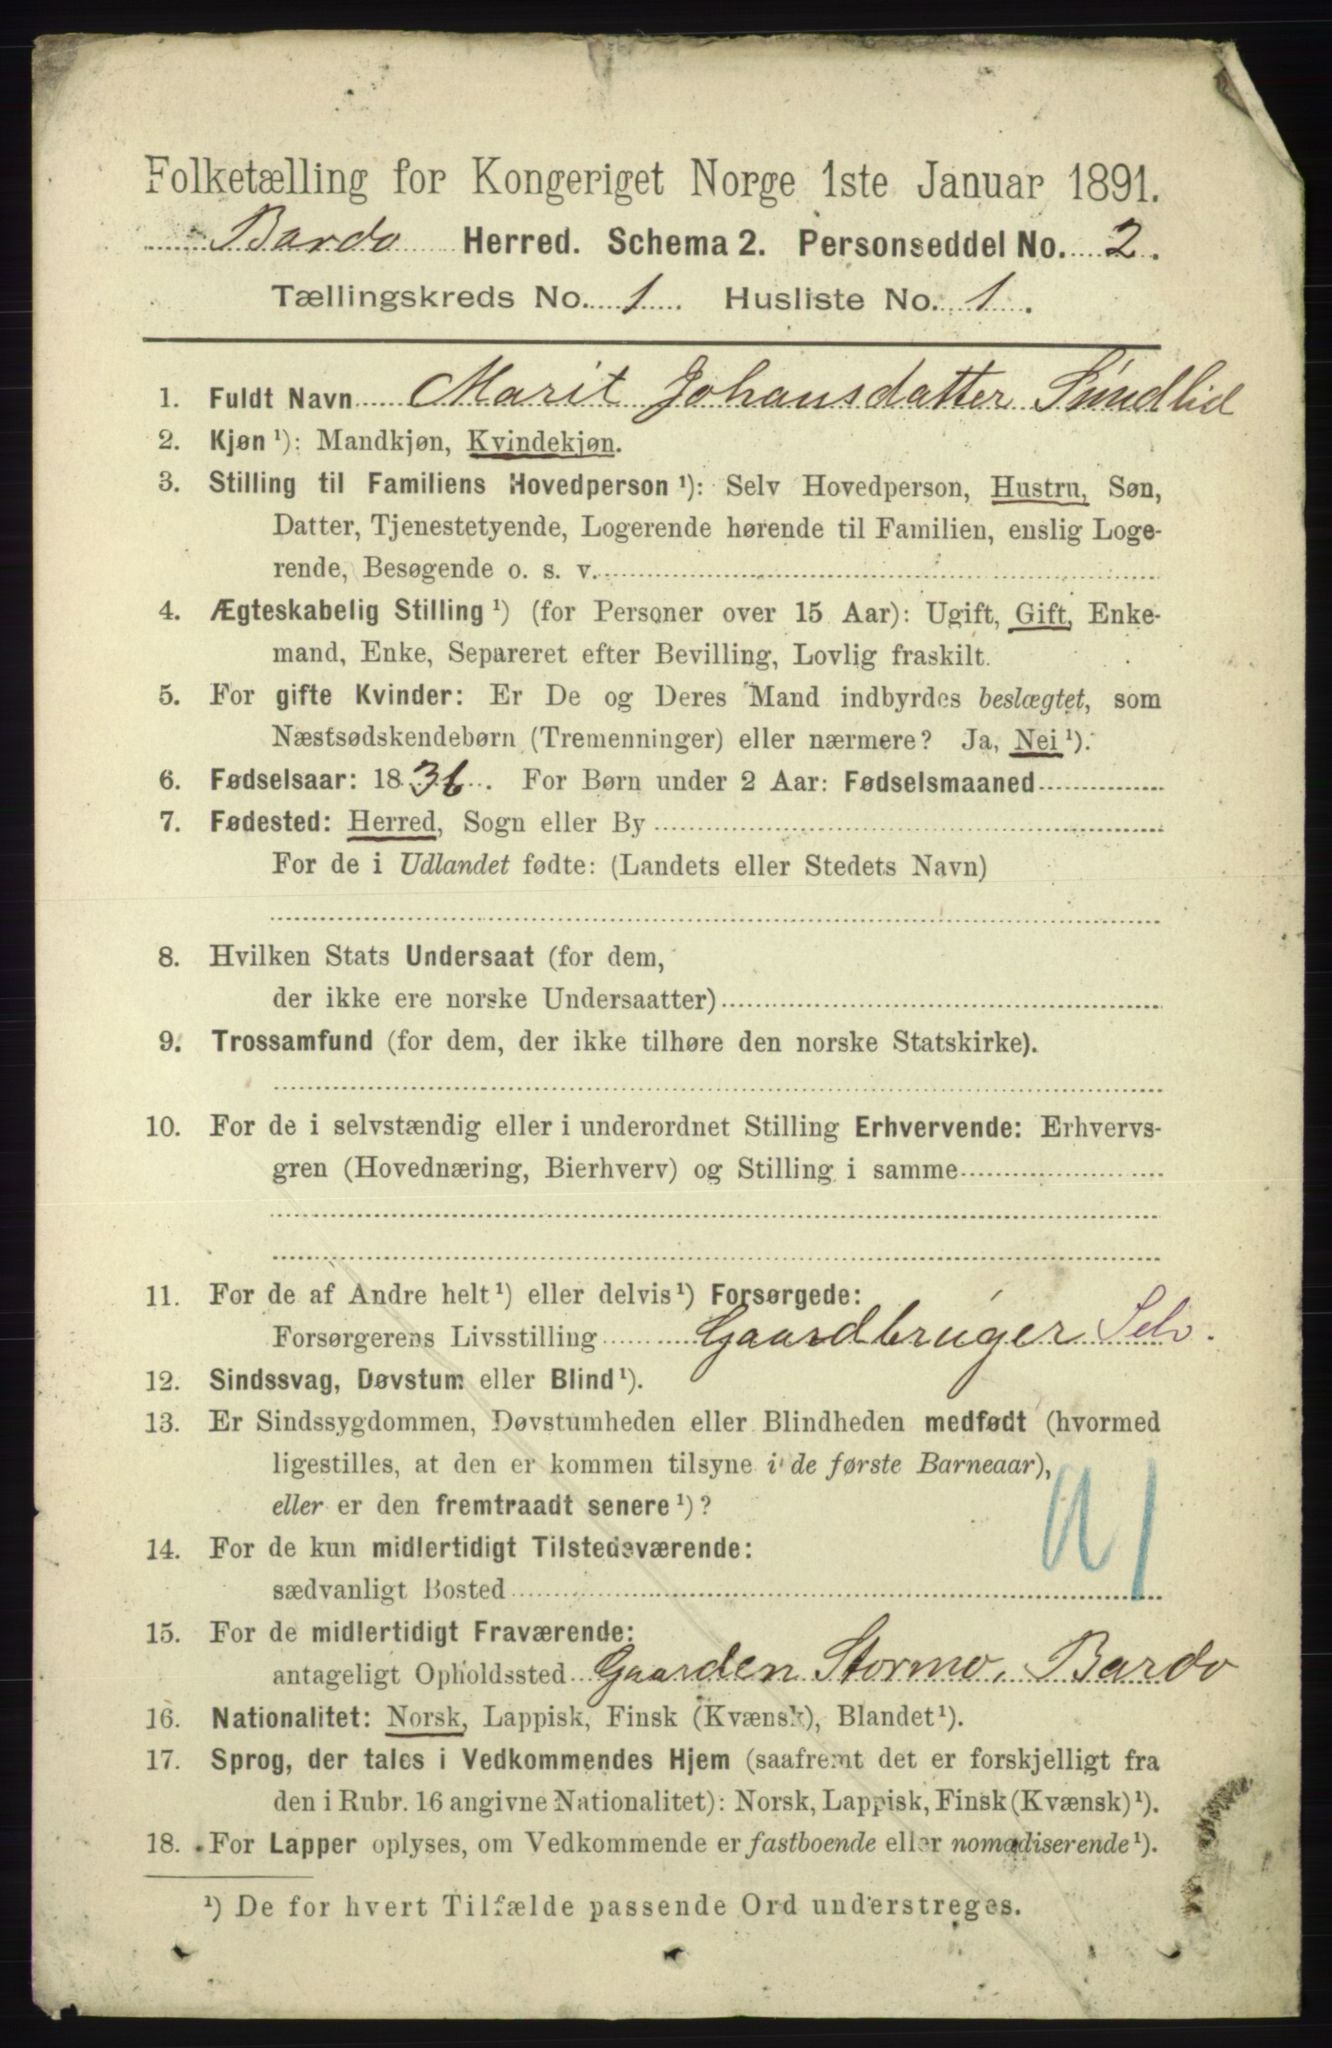 Folketælling for Kongeriget Norge 1ste Januar 1891.
Bardo Herred. Schema 2. Personseddel No. 2.
Tællingskreds No. 1. Husliste No. 1.
1. Fuldt Navn Marit Johansdatter Sundlid
2. Kjøn ¹): Mandkjøn, Kvindekjøn.
3. Stilling til Familiens Hovedperson ¹): Selv Hovedperson, Hustru, Søn,
Datter, Tjenestetyende, Logerende hørende til Familien, enslig Loge-
rende, Besøgende o. s. v.
4. Ægteskabelig Stilling ¹) (for Personer over 15 Aar): Ugift, Gift, Enke-
mand, Enke, Separeret efter Bevilling, Lovlig fraskilt.
5. For gifte Kvinder: Er De og Deres Mand indbyrdes beslægtet, som
Næstsødskendebørn (Tremenninger) eller nærmere? Ja, Nei ¹).
6. Fødselsaar: 1836. For Børn under 2 Aar: Fødselsmaaned
7. Fødested: Herred, Sogn eller By
For de i Udlandet fødte: (Landets eller Stedets Navn)
8. Hvilken Stats Undersaat (for dem,
der ikke ere norske Undersaatter)
9. Trossamfund (for dem, der ikke tilhøre den norske Statskirke).
10. For de i selvstændig eller i underordnet Stilling Erhvervende: Erhvervs-
gren (Hovednæring, Bierhverv) og Stilling i samme
11. For de af Andre helt ¹) eller delvis ¹) Forsørgede:
Forsørgerens Livsstilling Gaardbruger Selv.
12. Sindssvag, Døvstum eller Blind ¹).
13. Er Sindssygdommen, Døvstumheden eller Blindheden medfødt (hvormed
ligestilles, at den er kommen tilsyne i de første Barneaar),
eller er den fremtraadt senere ¹)?
14. For de kun midlertidigt Tilstedeværende:
sædvanligt Bosted
15. For de midlertidigt Fraværende:
antageligt Opholdssted Gaarden Stormo, Bardo
16. Nationalitet: Norsk, Lappisk, Finsk (Kvænsk), Blandet ¹).
17. Sprog, der tales i Vedkommendes Hjem (saafremt det er forskjelligt fra
den i Rubr. 16 angivne Nationalitet): Norsk, Lappisk, Finsk (Kvænsk) ¹).
18. For Lapper oplyses, om Vedkommende er fastboende eller nomadiserende ¹).
¹) De for hvert Tilfælde passende Ord understreges.